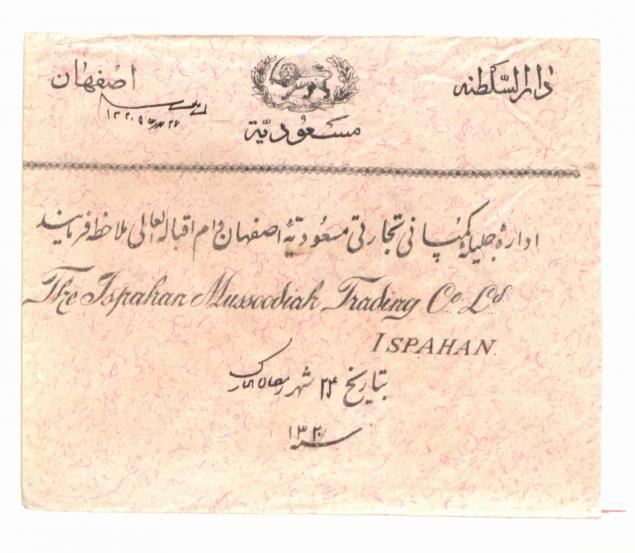 دارالسّلطنه
اصفهان
مسعُودیّة
ادارهٔ جلیلهٔ کمپانی تجارتی مسعُودیّهٔ اصفهان دام اقباله العالی ملاحظه فرمایند
The Ispahan Mussoodiah Trading Co. Ld.
ISPAHAN.
بتاریخ ۲۴ شهر رمضان المبارک
سنه ۱۳۲۰